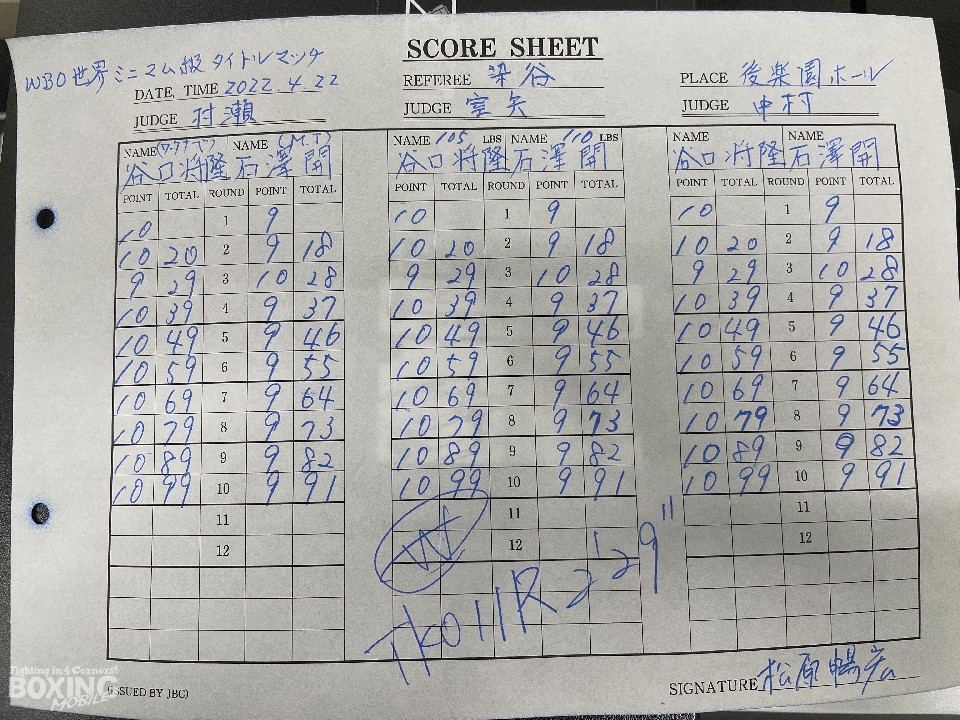 WBO世界ミニマム級タイトルマッチ
SCORE SHEET
DATE, TIME 2022.4.22 REFEREE 染谷 PLACE 後楽園ホール
JUDGE 村瀬 JUDGE 室矢 JUDGE 中村
NAME (ワタナベ) NAME (M.T) NAME 105 LBS NAME 110 LBS NAME NAME
谷口将隆 石澤開 谷口将隆 石澤開 谷口将隆 石澤開
POINT TOTAL ROUND POINT TOTAL POINT TOTAL ROUND POINT TOTAL POINT TOTAL ROUND POINT TOTAL
10 1 9 10 1 9 10 1 9
10 20 2 9 18 10 20 2 9 18 10 20 2 9 18
9 29 3 10 28 9 29 3 10 28 9 29 3 10 28
10 39 4 9 37 10 39 4 9 37 10 39 4 9 37
10 49 5 9 46 10 49 5 9 46 10 49 5 9 46
10 59 6 9 55 10 59 6 9 55 10 59 6 9 55
10 69 7 9 64 10 69 7 9 64 10 69 7 9 64
10 79 8 9 73 10 79 8 9 73 10 79 8 9 73
10 89 9 9 82 10 89 9 9 82 10 89 9 9 82
10 99 10 9 91 10 99 10 9 91 10 99 10 9 91
11 11 11
12 12 12
TKO 11R 2'29"
(ISSUED BY JBC) SIGNATURE 松原暢宏
Fighting in 4 Corners!
BOXING
MOBILE